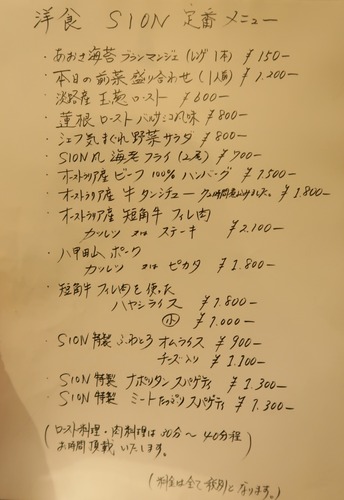 洋食 SION 定番メニュー
・あおさ海苔フランマンジェ(レンゲ1本) ¥150-
・本日の前菜盛り合わせ(1人前) ¥1.200-
・淡路産 玉葱ロースト ¥600-
・蓮根ロースト バルサミコ風味 ¥800-
・シェフ気まぐれ野菜サラダ ¥800-
・SION風 海老フライ(2尾) ¥700-
・オーストラリア産 ビーフ100% ハンバーグ ¥1500-
・オーストラリア産 牛タンシチュー 72時間煮込みました。¥1.800-
・オーストラリア産 短角牛フィレ肉
カツレツ 又は ステーキ ¥2.100-
・八甲田山ポーク
カツレツ 又は ピカタ ¥1.800-
・短角牛フィレ肉を使った
ハヤシライス ¥1.800-
小 ¥1.000-
・SION特製 ふわとろ オムライス ¥900-
チーズ入り ¥1.100-
・SION特製 ナポリタンスパゲティ ¥1.300-
・SION特製 ミートたっぷりスパゲティ ¥1.300-
(ロースト料理・肉料理は30分〜40分程
お時間頂戴いたします。)
(料金は全て税別となります。)